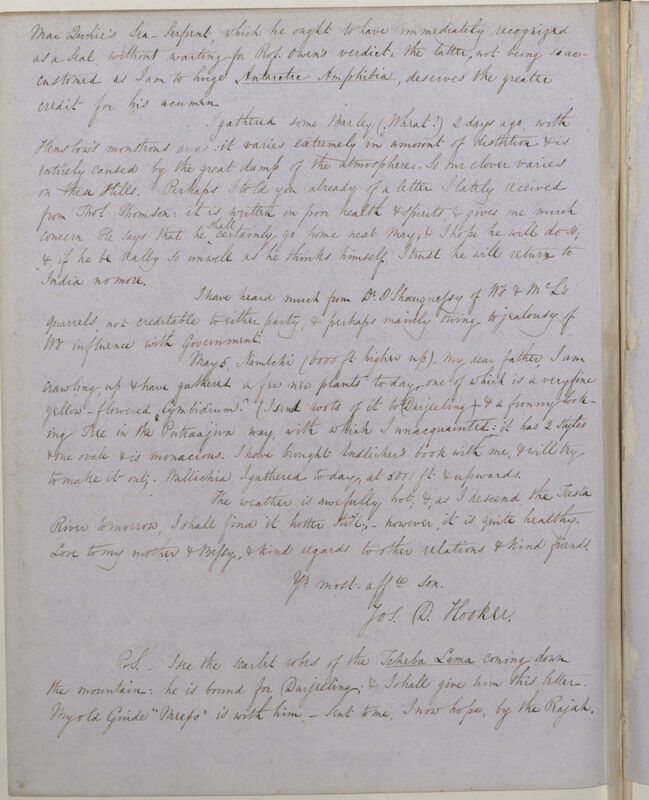 Mac Quhie's Sea-Serpent which he ought to have immediately recognized
as a Seal without waiting for Prof. Owen's verdict: the latter, not being so ac-
customed as I am to huge Antarctic Amphibia, deserves the greater
credit for his acumen.
I gathered some Barley (Wheat?) 2 days ago, with
Henslow's monstrous awns: it varies extremely in amount of distortion & is
entirely caused by the great damp of the atmosphere. So our clover varies
on these Hills. Perhaps I told you already of a letter I lately received
from Thos. Thomson: it is written in poor health & spirits & gives me much
concern. He says that he shall certainly go home next May, & I hope he will do so;
& if he be really so unwell as he thinks himself, I trust he will return to
India no more.
I have heard much from Dr. O'Shaugnessy of W's & McL's
quarrels, not creditable to either party, & perhaps mainly owing to jealousy of
W's influence with Government.
May 5, Namtchi (6000 ft higher up). My dear father, I am
crawling up & have gathered a few new plants to day, one of which is a very fine
yellow-flowered Cymbidium? (I send roots of it to Darjeeling) & a funny look-
ing Tree in the Putranjiva way, with which I unacquainted: it has 2 styles
& one ovule & is monacious. I have brought Endlicher's book with me, & will try
to make it out. Wallichia I gathered to day, at 5000 ft & upwards.
The weather is awefully hot, & as I descend the Teesta
River tomorrow, I shall find it hotter still, - however, it is quite healthy.
Love to my mother & Bessy, & kind regards to other relations & kind friends.
Yr most affte son.
Jos. D. Hooker.
P.S. - I see the scarlet robes of the Tcheba Lama coming down
the mountain: he is bound for Darjeeling; & I shall give him this letter.
My old Guide "Meepo" is with him, - sent to me, I now hope, by the Rajah.